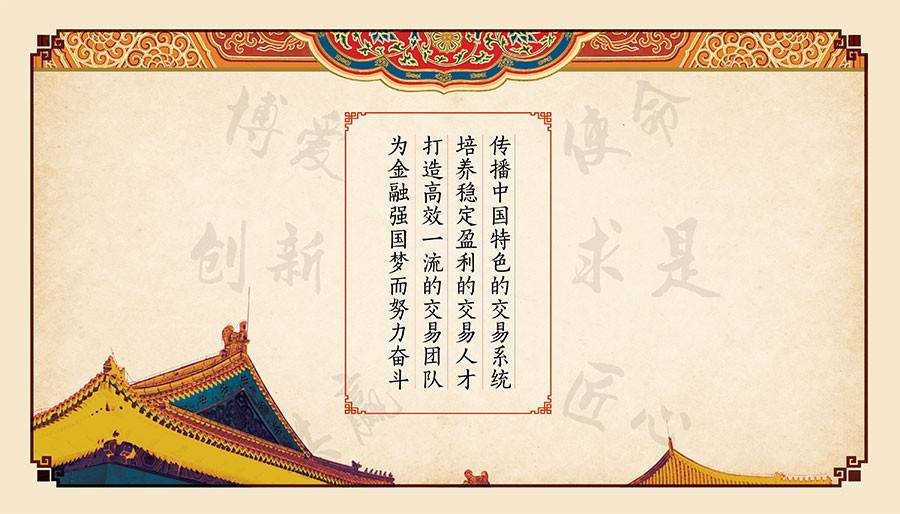 传播中国特色的交易系统
培养稳定盈利的交易人才
打造高效一流的交易团队
为金融强国梦而努力奋斗
使命
求是
匠心
博爱
创新
赢